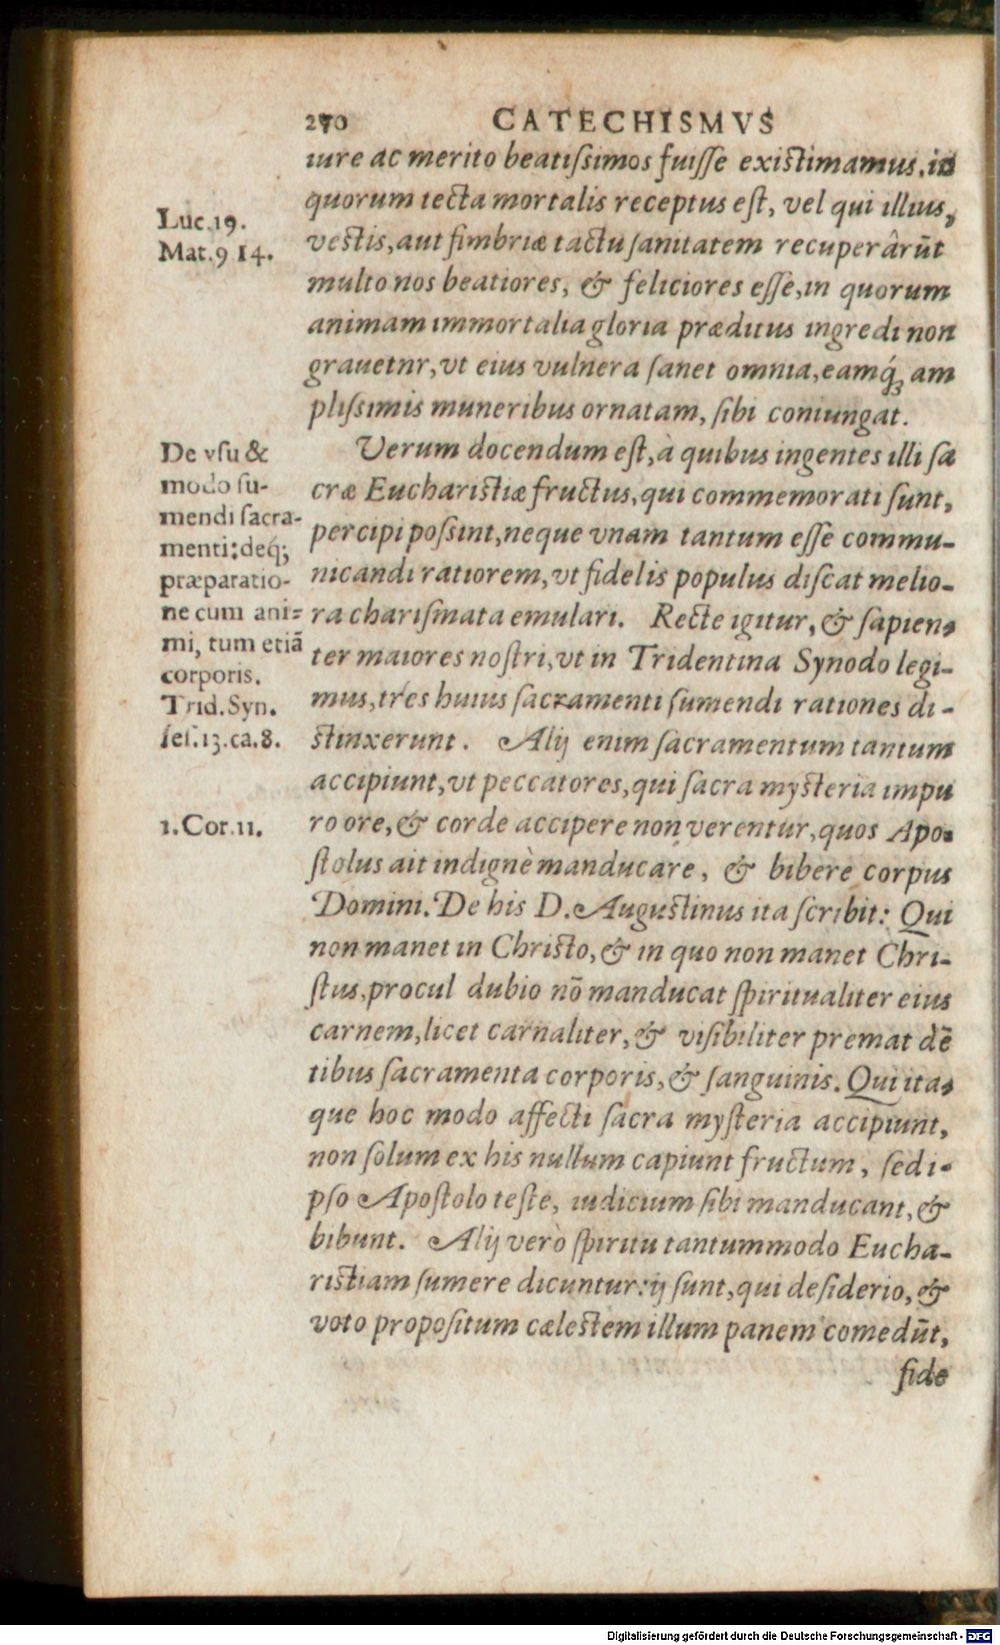 270 CATECHISMVS
iure ac merito beatiſsimos fuiſſe existimamus, in
quorum tecta mortalis receptus eſt, vel qui illius,
vestis, aut fimbriæ tactu ſanitatem recuperârūt
multo nos beatiores, & feliciores eſſe, in quorum
animam immortalia gloria præditus ingredi non
grauetnr, vt eius vulnera ſanet omnia, eamq́ꝫ am
pliſsimis muneribus ornatam, ſibi coniungat.
Luc. 19.
Mat. 9 14.
Verum docendum eſt, à quibus ingentes illi ſa
cræ Euchariſtiæ fructus, qui commemorati ſunt,
percipi poſsint, neque vnam tantum eſſe commu-
nicandi rationem, vt fidelis populus diſcat melio-
ra chariſmata emulari. Recte igitur, & ſapien-
ter maiores noſtri, vt in Tridentina Synodo legi-
mus, tres huius ſacramenti ſumendi rationes di-
stinxerunt. Alij enim ſacramentum tantum
accipiunt, vt peccatores, qui ſacra mysteria impu
ro ore, & corde accipere non verentur, quos Apo-
ſtolus ait indignè manducare, & bibere corpus
Domini. De his D. Augustinus ita ſcribit: Qui
non manet in Christo, & in quo non manet Chri-
ſtus, procul dubio nō manducat ſpiritualiter eius
carnem, licet carnaliter, & viſibiliter premat dē
tibus ſacramenta corporis, & ſanguinis. Qui ita-
que hoc modo affecti ſacra myſteria accipiunt,
non ſolum ex his nullum capiunt fructum, ſed i-
pſo Apoſtolo teſte, iudicium ſibi manducant, &
bibunt. Alij verò ſpiritu tantummodo Eucha-
ristiam ſumere dicuntur: ij ſunt, qui deſiderio, &
voto propoſitum cæleſtem illum panem comedūt,
fide
De vſu &
modo ſu-
mendi ſacra-
menti: deq́;
præparatio-
ne cum ani-
mi, tum etiā
corporis.
Trid. Syn.
ſeſ. 13. ca. 8.
1. Cor. 11.
Digitalisierung gefördert durch die Deutsche Forschungsgemeinschaft - DFG